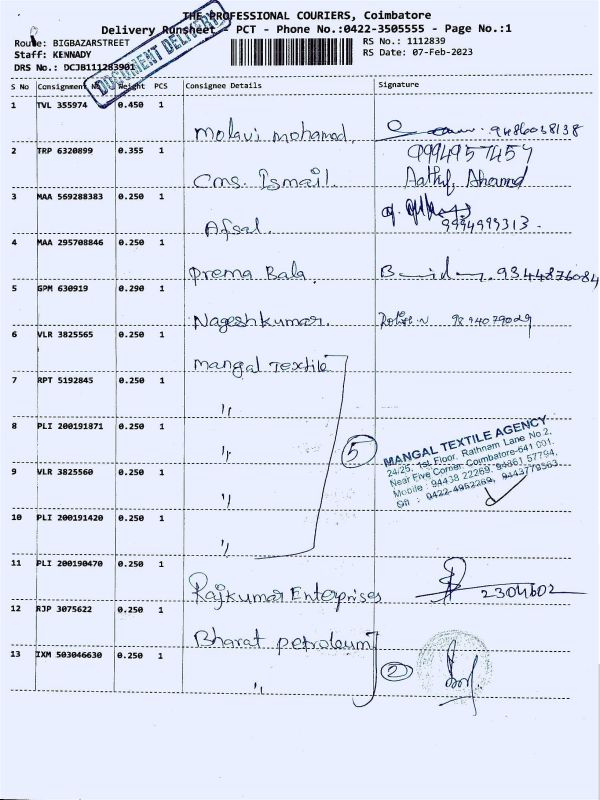 THE PROFESSIONAL COURIERS, Coimbatore
Delivery Runsheet - PCT - Phone No.:0422-3505555 - Page No.:1
DOCUMENT DELIVERY
Route: BIGBAZARSTREET
Staff: KENNADY
DRS No.: DCJB111283901
RS No.: 1112839
RS Date: 07-Feb-2023
S No Consignment No Weight PCS Consignee Details Signature
1 TVL 355974 0.450 1
Molavi mohamed. 9486038138
2 TRP 6320899 0.355 1 9994957457
Cms. Ismail. Aathif Ahamed
3 MAA 569288383 0.250 1
Afsal. 9994999313.
4 MAA 295708846 0.250 1
Prema Bala. 9344876084
5 GPM 630919 0.290 1
Nageshkumar. 9894079029
6 VLR 3825565 0.250 1
Mangal Textile
7 RPT 5192845 0.250 1
"
8 PLI 200191871 0.250 1
" 5
MANGAL TEXTILE AGENCY
24/25, 1st Floor, Rathnam Lane No.2,
Near Five Corner, Coimbatore-641 001.
Mobile : 94438 22269, 94861 57794,
Off : 0422-4952269, 9443779563
9 VLR 3825560 0.250 1
"
10 PLI 200191420 0.250 1
"
11 PLI 200190470 0.250 1
Rajkumar Enterprises 2304602
12 RJP 3075622 0.250 1
Bharat petroleum
13 IXM 503046630 0.250 1
" 2